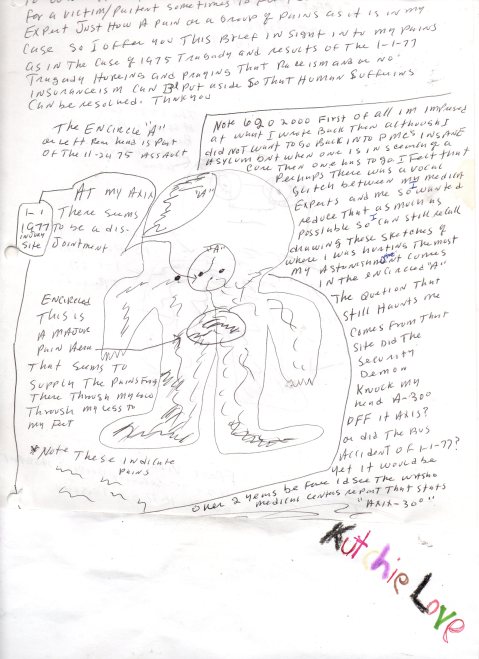 for a victim/patient sometimes to
Expert Just How A pain or a Group of pains as it is in my
Case So I offer you This Brief in Sight into my pains
as in The Case of 1975 Tragady and results of The 1-1-77
Tragady Hopeing and Praying That Raceism and or no
insuranceism Can Be put aside So That Human Sufferins
Can be resolved. Thank you
The Encircle "A"
on left Rear head is Part
Of The 11-24-75 Assault
Note 6-9-2000 First of all im impressed
at what I wrote Back Then although I
did not want to go Back into DMC's INSANE
Asylum But when one is in seeking a
Cure Then one has to go I Fect that
Perhaps There was a vocal
Glitch between my medical
Experts and me so I wanted
reduce That as much as
possiable So I can still recall
drawing These sketches of
where I was hurting The most
my Astonishment comes
in The encircled "A"
The Question That
Still Haunts me
Comes From That
Site Did The
Security
Demon
Knock my
head A-300
OFF it Axis?
or did The Bus
Accident OF 1-1-77?
yet it would be
over 2 years be fore Id see The
medical centers report That Stats
"AXIX-300"
"A"
"A"
1-1
1977
injury
Site
AT my AXIX
There seems
To be a dis-
Jointment
ENCIRCLED
THIS is
A MAJOR
Pain Area
That seems To
Supply The Pains From
There Through my
Through my legs to
my Feet
*Note These indicate
pains
Kutchie Love